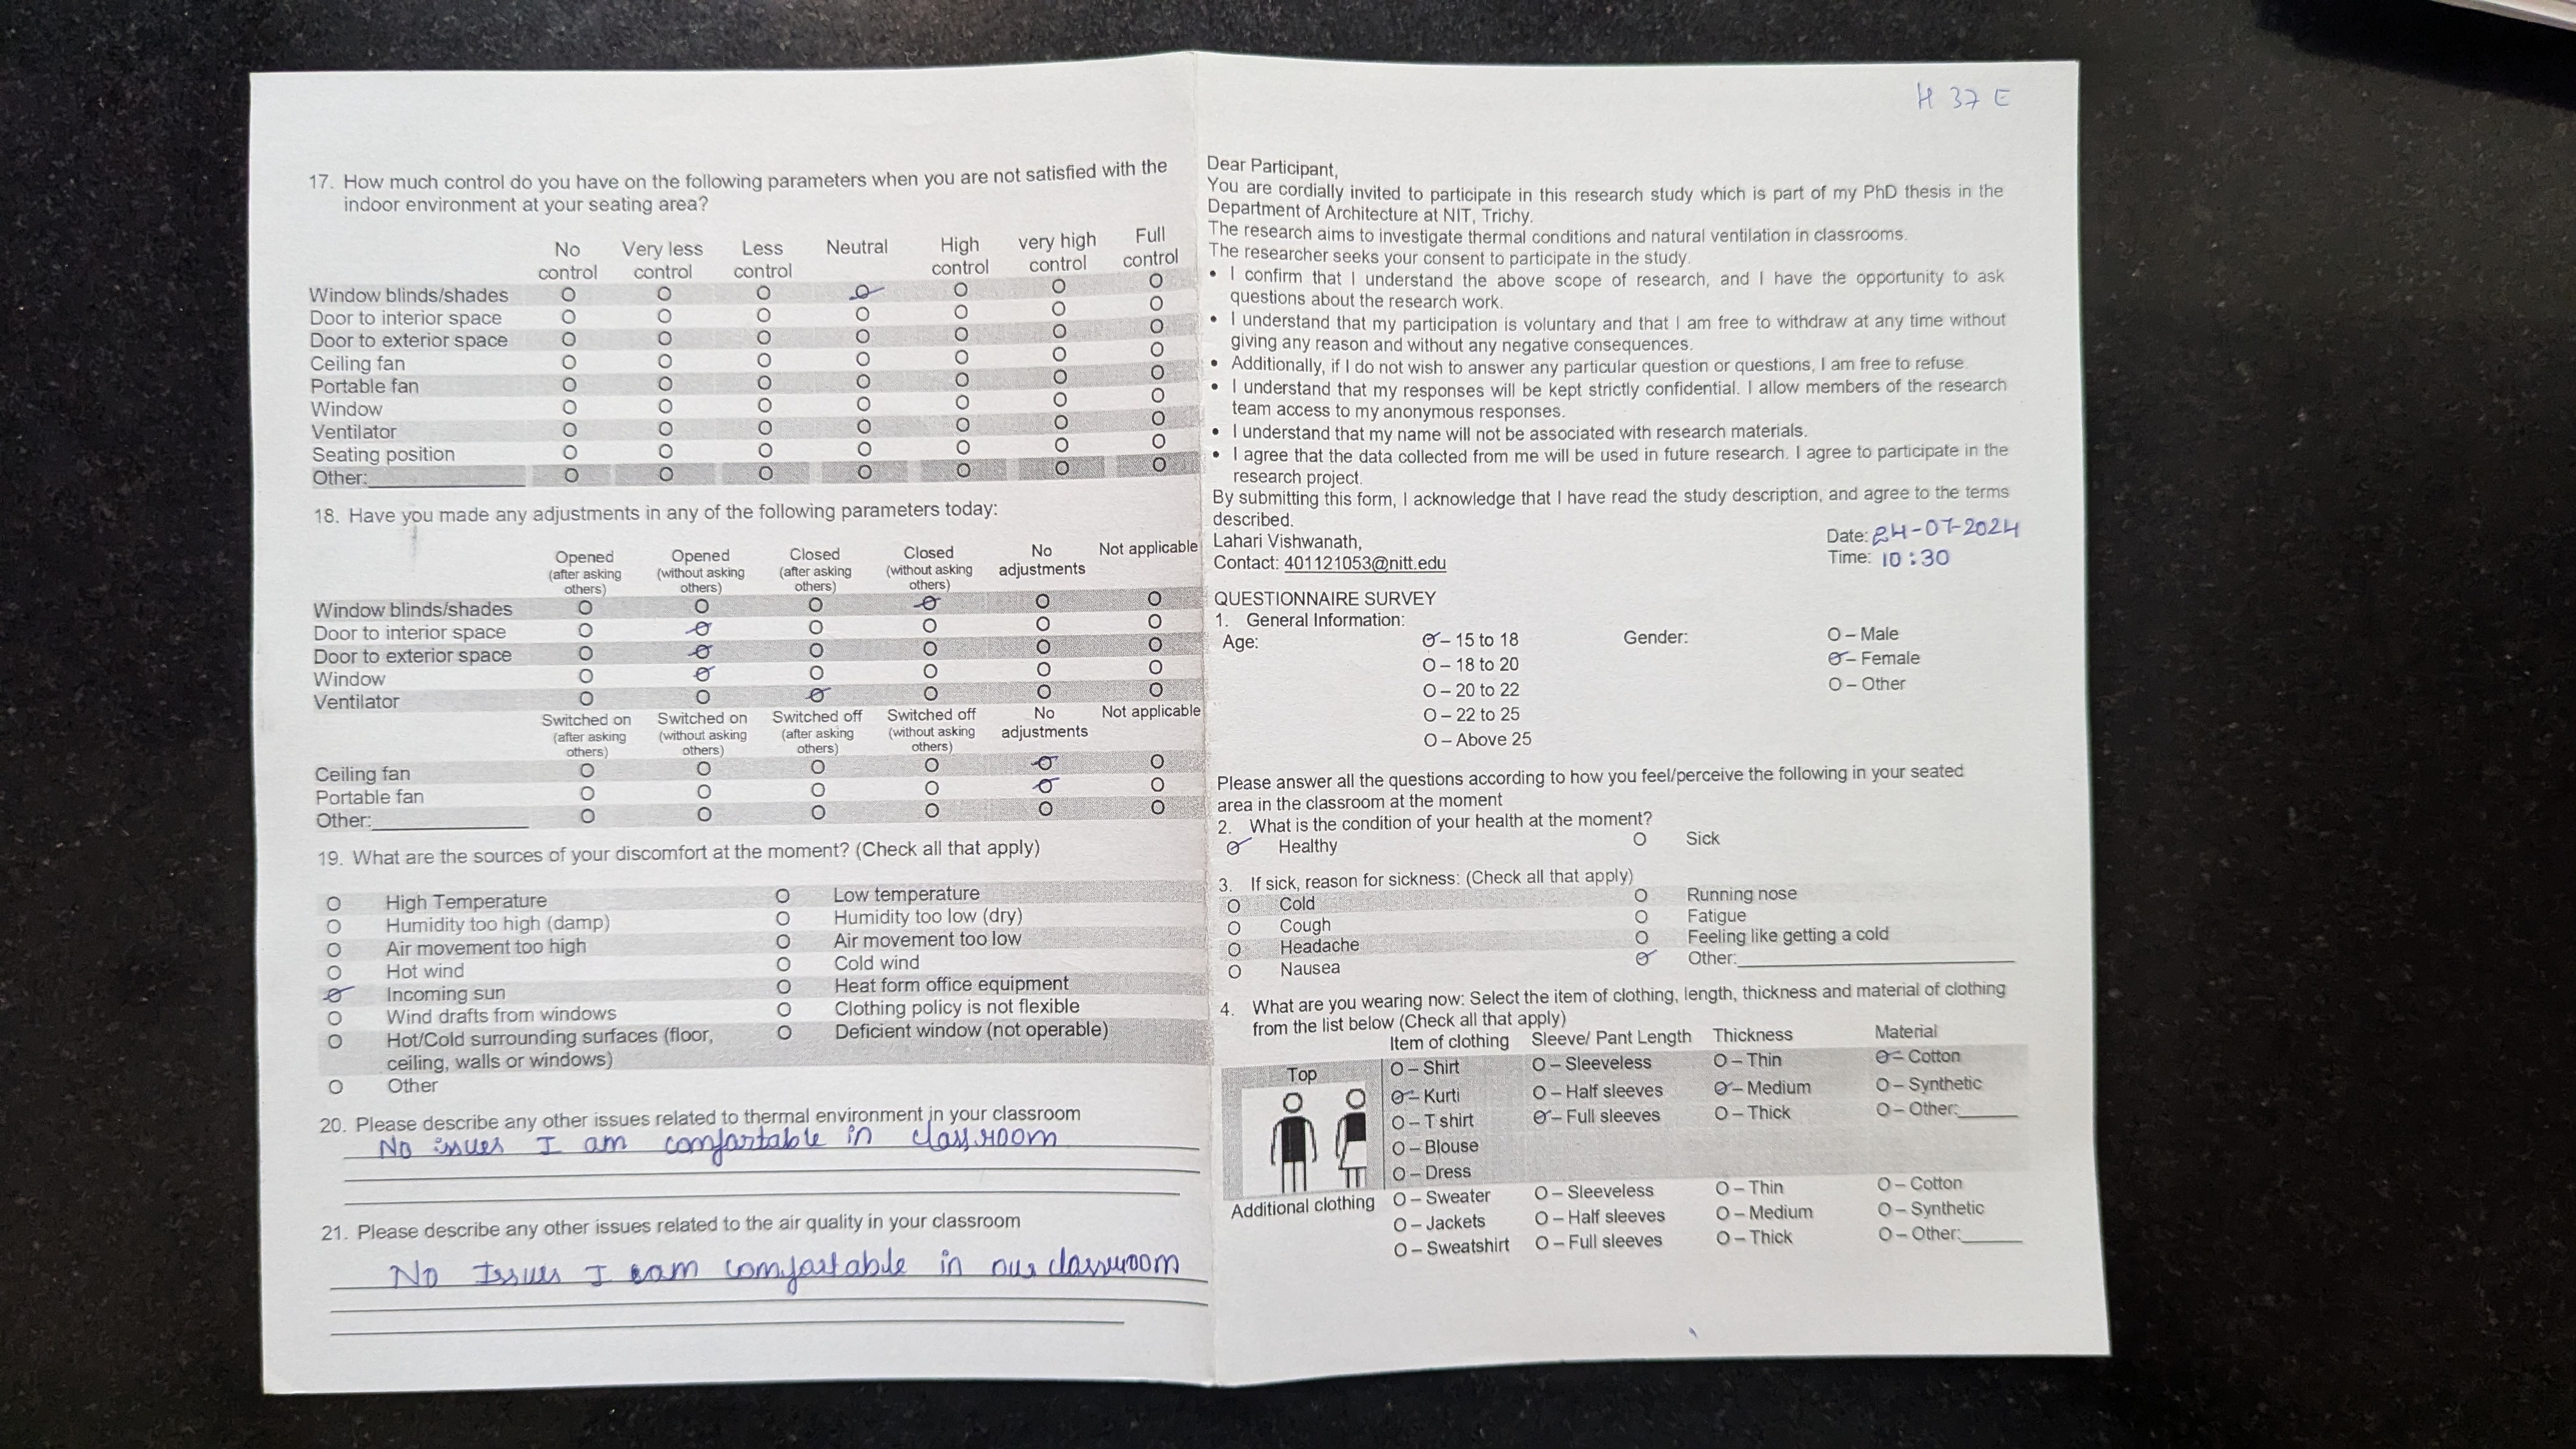 17. How much control do you have on the following parameters when you are not satisfied with the
indoor environment at your seating area?
No control Very less control Less control Neutral High control very high control Full control
Window blinds/shades O O O O O O O
Door to interior space O O O O O O O
Door to exterior space O O O O O O O
Ceiling fan O O O O O O O
Portable fan O O O O O O O
Window O O O O O O O
Ventilator O O O O O O O
Seating position O O O O O O O
Other: O O O O O O O
18. Have you made any adjustments in any of the following parameters today:
Opened (after asking others) Opened (without asking others) Closed (after asking others) Closed (without asking others) No adjustments Not applicable
Window blinds/shades O O O O O O
Door to interior space O O O O O O
Door to exterior space O O O O O O
Window O O O O O O
Ventilator O O O O O O
Switched on (after asking others) Switched on (without asking others) Switched off (after asking others) Switched off (without asking others) No adjustments Not applicable
Ceiling fan O O O O O O
Portable fan O O O O O O
Other: O O O O O O
19. What are the sources of your discomfort at the moment? (Check all that apply)
O High Temperature O Low temperature
O Humidity too high (damp) O Humidity too low (dry)
O Air movement too high O Air movement too low
O Hot wind O Cold wind
O Incoming sun O Heat form office equipment
O Wind drafts from windows O Clothing policy is not flexible
O Hot/Cold surrounding surfaces (floor, O Deficient window (not operable)
ceiling, walls or windows)
O Other
20. Please describe any other issues related to thermal environment in your classroom
No issues I am comfortable in classroom
21. Please describe any other issues related to the air quality in your classroom
No Issues I am comfortable in our classroom
H 37 E
Dear Participant,
You are cordially invited to participate in this research study which is part of my PhD thesis in the
Department of Architecture at NIT, Trichy.
The research aims to investigate thermal conditions and natural ventilation in classrooms.
The researcher seeks your consent to participate in the study.
• I confirm that I understand the above scope of research, and I have the opportunity to ask
questions about the research work.
• I understand that my participation is voluntary and that I am free to withdraw at any time without
giving any reason and without any negative consequences.
• Additionally, if I do not wish to answer any particular question or questions, I am free to refuse.
• I understand that my responses will be kept strictly confidential. I allow members of the research
team access to my anonymous responses.
• I understand that my name will not be associated with research materials.
• I agree that the data collected from me will be used in future research. I agree to participate in the
research project.
By submitting this form, I acknowledge that I have read the study description, and agree to the terms
described.
Lahari Vishwanath, Date: 24-07-2024
Contact: 401121053@nitt.edu Time: 10:30
QUESTIONNAIRE SURVEY
1. General Information:
Age: O – 15 to 18 Gender: O – Male
O – 18 to 20 O – Female
O – 20 to 22 O – Other
O – 22 to 25
O – Above 25
Please answer all the questions according to how you feel/perceive the following in your seated
area in the classroom at the moment
2. What is the condition of your health at the moment?
O Healthy O Sick
3. If sick, reason for sickness: (Check all that apply)
O Cold O Running nose
O Cough O Fatigue
O Headache O Feeling like getting a cold
O Nausea O Other:
4. What are you wearing now: Select the item of clothing, length, thickness and material of clothing
from the list below (Check all that apply)
Item of clothing Sleeve/ Pant Length Thickness Material
Top O – Shirt O – Sleeveless O – Thin O – Cotton
O – Kurti O – Half sleeves O – Medium O – Synthetic
O – T shirt O – Full sleeves O – Thick O – Other:
O – Blouse
O – Dress
Additional clothing O – Sweater O – Sleeveless O – Thin O – Cotton
O – Jackets O – Half sleeves O – Medium O – Synthetic
O – Sweatshirt O – Full sleeves O – Thick O – Other: